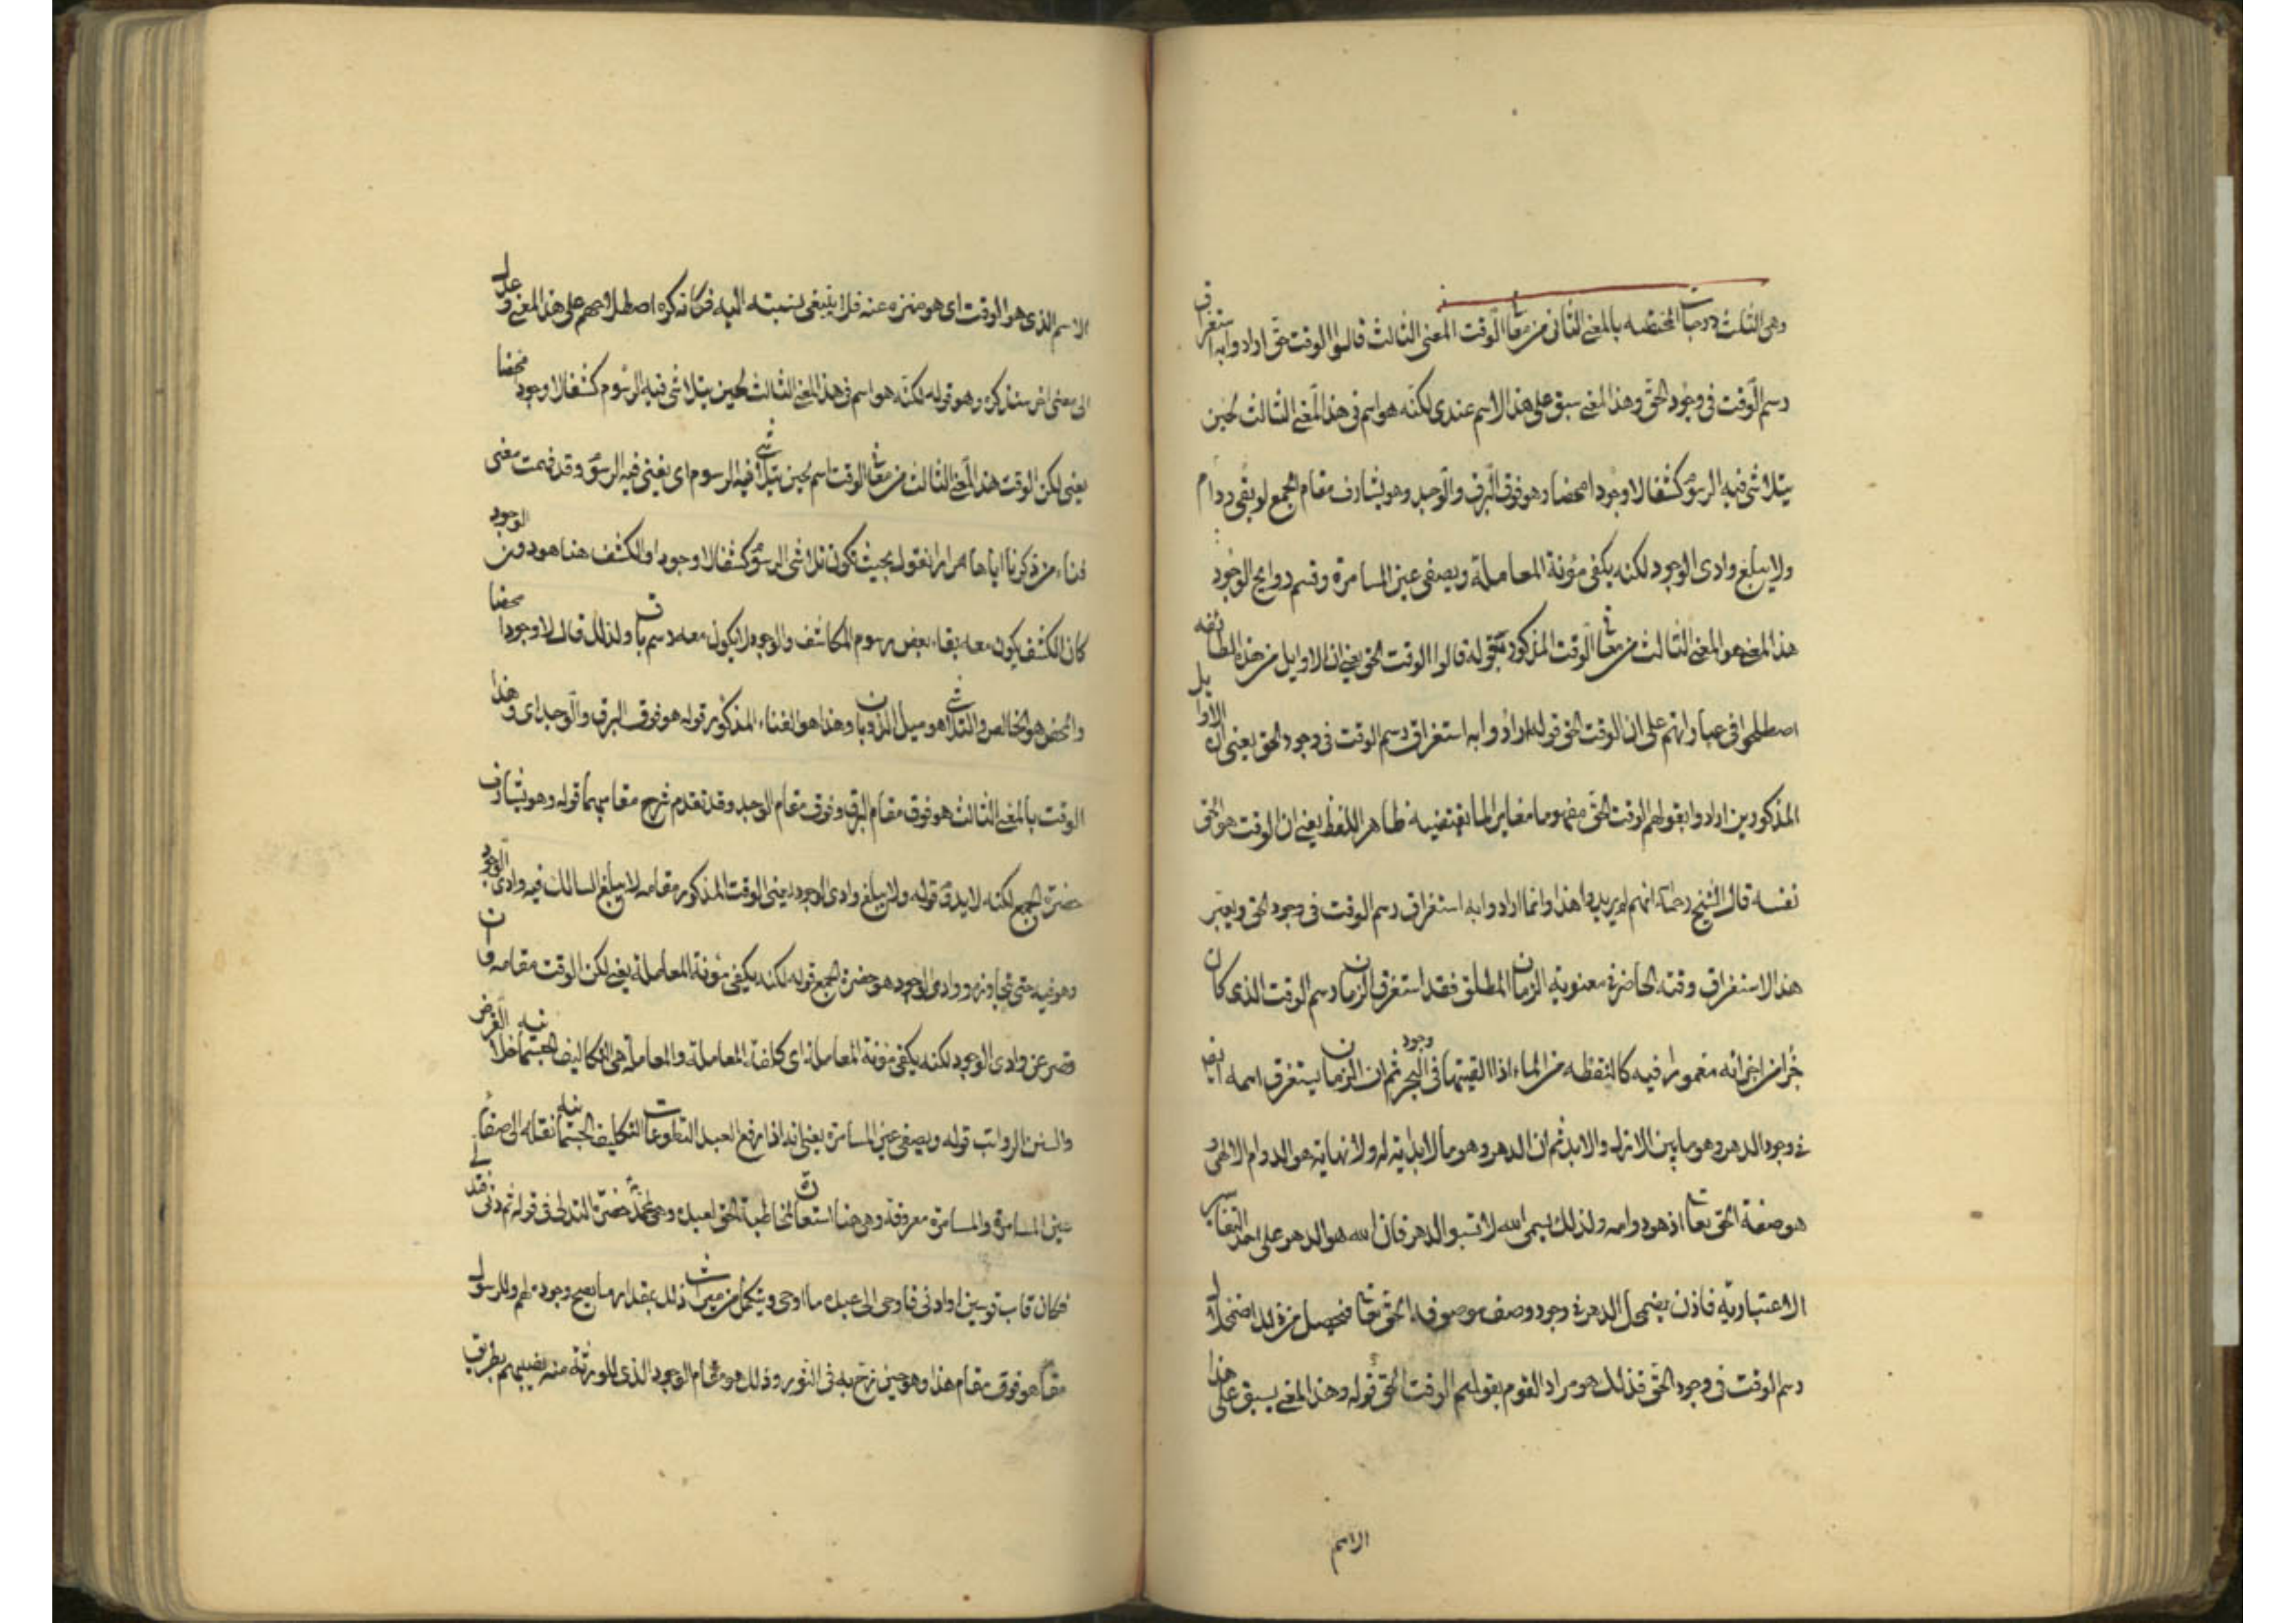 وهى الثلث درجات المختصه بالمعنى الثانى من معانى الوقت المعنى الثالث قالوا الوقت حق ارادوا به استغراق
رسم الوقت فى وجود الحق وهذا المعنى سبق على هذا الاسم عندى لكنه هو اسم فى هذا المعنى الثالث لحين
يتلاشى فيه الرسوم كشفا لا وجودا محضا وهو فوق البرق والوجد وهو يشارف مقام الجمع لو بقى ودام
ولا يبلغ وادى الوجود لكنه يكفى مؤنة المعاملة ويصفى عين المسامرة ويشم روايح الوجود
هذا المعنى هو المعنى الثالث من معانى الوقت المذكور بقوله قالوا الوقت الحق يعنى ان الاوايل من هذه الطائفه
اصطلحوا فى عباراتهم على ان الوقت الحق قوله ارادوا به استغراق رسم الوقت فى وجود الحق يعنى ان الاوايل
المذكورين ارادوا بقولهم الوقت الحق مفهوما مغايرا لما يقتضيه ظاهر اللفظ يعنى ان الوقت هو الحق
نفسه قال الشيخ رحمه انهم لم يريدوا هذا وانما ارادوا به استغراق رسم الوقت فى وجود الحق ويعتبر
هذا الاستغراق وقته الحاضرة معنوية الزمان المطلق فقد استغرق الزمان رسم الوقت الذى كان
جزأ من اجزائه مغمورا فيه كالنقطه من الماء اذا القيتها فى البحر ثم ان الزمان يستغرق اسمه ايضا
فى وجود الدهر وهو ما بين الازل والابد ثم ان الدهر وهو ما لا بداية له ولا نهاية هو الدوام الالهى و
هو صفة الحق تعالى اذ هو دوامه ولذلك يسمى الله لا تسبوا الدهر فان الله هو الدهر على احد التفاسير
الاعتباريه فاذن يضمحل الدهر فى وجود وصف موصوفه الحق تعالى فحصل من ذلك اضمحلال
رسم الوقت فى وجود الحق فذلك هو مراد القوم بقولهم الوقت الحق قوله وهذا المعنى يسبق على هذا
الاسم
الاسم الذى هو الوقت اى هو منزه عنه فلا ينبغى نسبته اليه فكانه كره اصطلاحهم على هذا المعنى وعدل
الى معنى اخر سنذكره وهو قوله لكنه هو اسم فى هذا المعنى الثالث لحين يتلاشى فيه الرسوم كشفا لا وجودا محضا
يعنى لكن الوقت هذا المعنى الثالث من معانى الوقت اسم لحين يتلاشى فيه الرسوم اى يفنى فيه الرسوم وقد فهمت معنى
فناء من ذكرنا اياها مرارا نقول بحيث تكون تلاشى الرسوم كشفا لا وجودا والكشف هنا هو دون الوجود
كان الكشف يكون معه بقاء بعض رسوم المكاشف والوجود لا يكون معه رسم باق ولذلك قال لا وجودا محضا
والمحض هو الخالص والتلاشى هو سيل الذوبان وهذا هو الفناء المذكور قوله هو فوق البرق والوجد اى وهذا
الوقت بالمعنى الثالث هو فوق مقام البرق وفوق مقام الوجد وقد تقدم شرح مقاميهما قوله وهو يشارف
حضرة الجمع لكنه لا يدق قوله ولا يبلغ وادى الوجود يعنى الوقت المذكور مقامه لا يبلغ السالك فيه وادى الوجود
وهو فيه حتى تجاوزه ووادى الوجود هو حضرة الجمع قوله لكنه يكفى مؤنة المعاملة يعنى لكن الوقت مقامه وان
قصر عن وادى الوجود لكنه يكفى مؤنة المعاملة اى كلفة المعاملة والمعاملة هى التكاليف الجسمانيه خلا الفرض
والسنن الرواتب قوله ويصفى عين المسامرة يعنى انه اذا رفع العبد التطوعات التكليفيه الجسمانيه نقتله الى صفاء
عين المسامرة والمسامرة معروفة وهى هنا استعارة لمخاطبة الحق لعبده وهى حضرة التدلى فى قوله ثم دنى فتدلى
فكان قاب قوسين او ادنى فاوحى الى عبده ما اوحى ويتكمل من ميراث ذلك بمقدار ما يصح وجوده لهم وللرسول
مقام هو فوق مقام هذا وهو حين زخ به فى النور وذلك هو مقام الوجود الذى للورثه منه نصيبهم بطريق